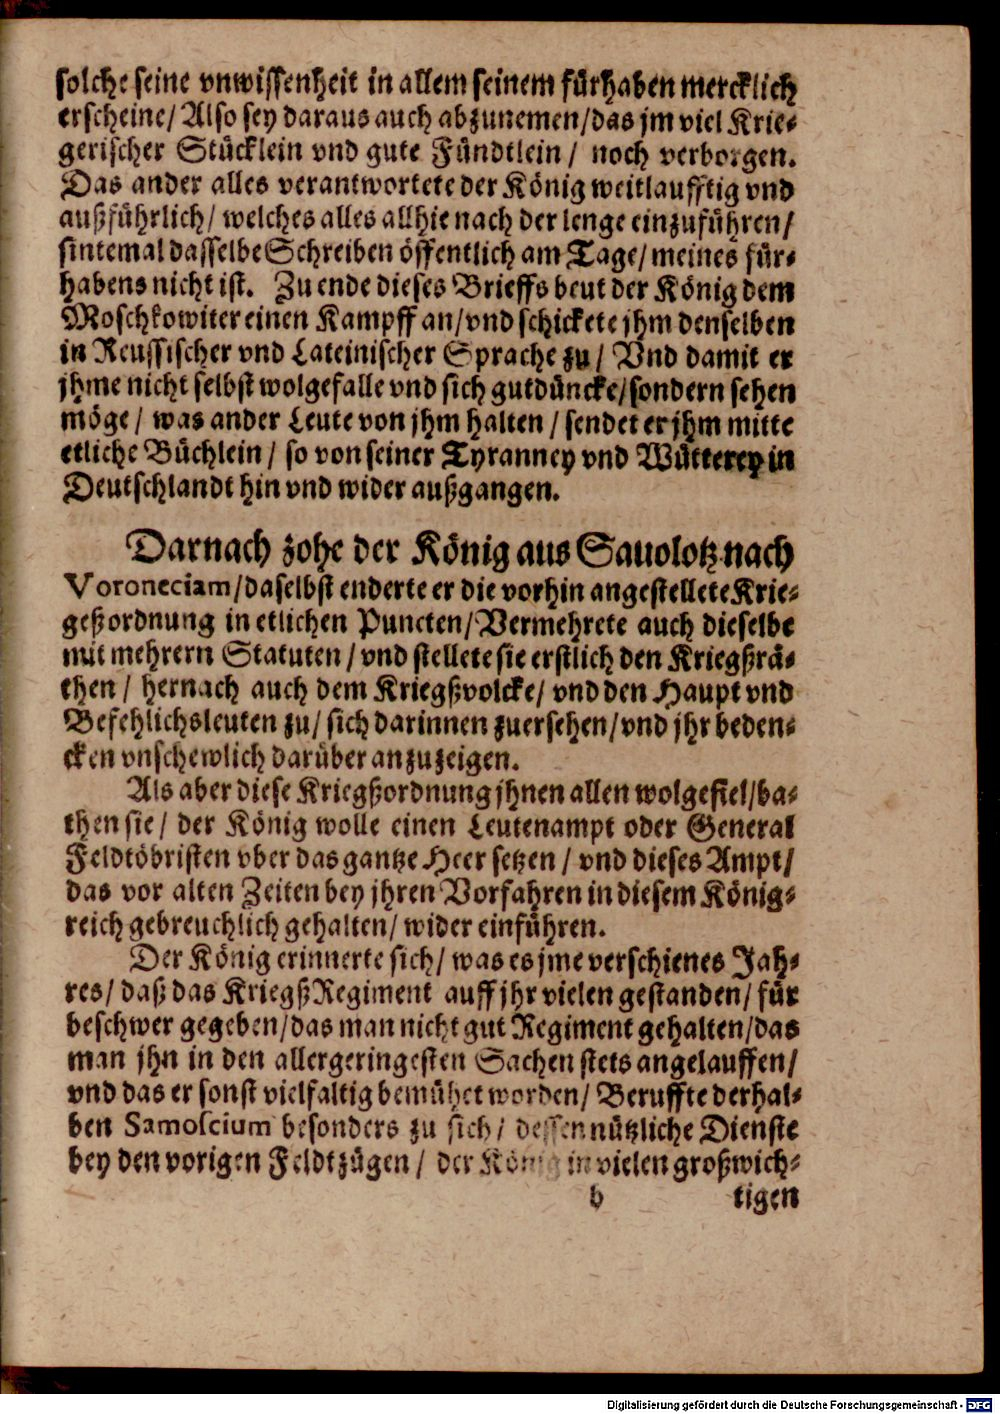 solche seine vnwissenheit in allem seinem fürhaben mercklich
erscheine/ Also sey daraus auch abzunemen/das jm viel Krie-
gerischer Stücklein vnd gute Fündtlein/ noch verborgen.
Das ander alles verantwortete der König weitlaufftig vnd
außführlich/ welches alles allhie nach der lenge einzuführen/
sintemal dasselbe Schreiben öffentlich am Tage/ meines für-
habens nicht ist. Zu ende dieses Brieffs beut der König dem
Moschkowiter einen Kampff an/vnd schickete jhm denselben
in Reussischer vnd Lateinischer Sprache zu/ Vnd damit er
jhme nicht selbst wolgefalle vnd sich gutdüncke/sondern sehen
möge/ was ander Leute von jhm halten/ sendet er jhm mitte
etliche Büchlein/ so von seiner Tyranney vnd Wütterey in
Deutschlandt hin vnd wider außgangen.
Darnach zohe der König aus Sauolotz nach
Voroneciam/daselbst enderte er die vorhin angestellete Krie-
geßordnung in etlichen Puncten/Vermehrete auch dieselbe
mit mehrern Statuten/ vnd stellete sie erstlich den Kriegßrä-
then/ hernach auch dem Kriegßvolcke/ vnd den Haupt vnd
Befehlichsleuten zu/ sich darinnen zuersehen/vnd jhr beden-
cken vnschewlich darüber anzuzeigen.
Als aber diese Kriegßordnung jhnen allen wolgefiel/ba-
then sie/ der König wolle einen Leutenampt oder General
Feldtöbristen vber das gantze Heer setzen/ vnd dieses Ampt/
das vor alten Zeiten bey jhren Vorfahren in diesem König-
reich gebreuchlich gehalten/ wider einführen.
Der König erinnerte sich/ was es jme verschienes Jah-
res/ daß das KriegßRegiment auff jhr vielen gestanden/ für
beschwer gegeben/das man nicht gut Regiment gehalten/das
man jhn in den allergeringesten Sachen stets angelauffen/
vnd das er sonst vielfaltig bemühet worden/ Beruffte derhal-
ben Samoscium besonders zu sich/ dessen nützliche Dienste
bey den vorigen Feldtzügen/ der König in vielen großwich-
b tigen
Digitalisierung gefördert durch die Deutsche Forschungsgemeinschaft - DFG